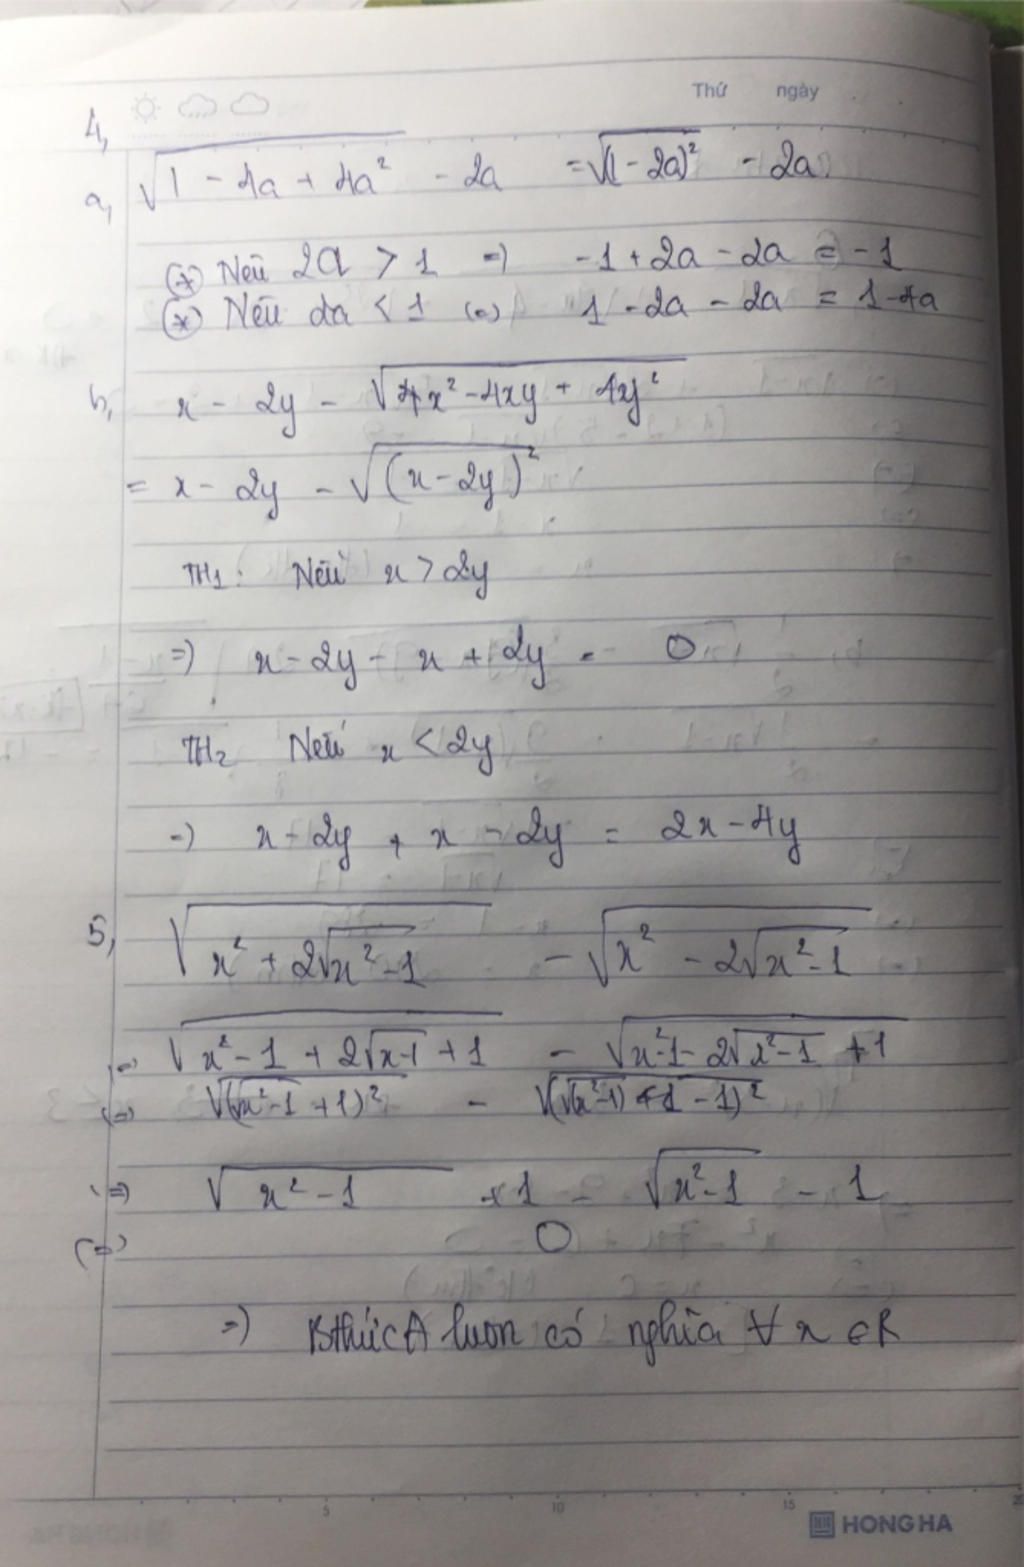 Thứ ngày
4,
a, √(1 - 4a + 4a²) - 2a = √(1 - 2a)² - 2a
(*) Nếu 2a > 1 => -1 + 2a - 2a = -1
(*) Nếu 2a < 1 (=) 1 - 2a - 2a = 1 - 4a
b, x - 2y - √(x² - 4xy + 4y²)
= x - 2y - √(x - 2y)²
TH1: Nếu x > 2y
=) x - 2y - x + 2y = 0
TH2 Nếu x < 2y
=) x - 2y + x - 2y = 2x - 4y
5, √(x² + 2√(x² - 1)) - √(x² - 2√(x² - 1))
(=) √(x² - 1 + 2√(x - 1) + 1) - √(x² - 1 - 2√(x² - 1) + 1)
(=) √(√(x² - 1) + 1)² - √(√(x² - 1) - 1)²
(=) √(x² - 1) + 1 - √(x² - 1) - 1
(=) 0
=) Bthức A luôn có nghĩa ∀ x ∈ R
5 10 15 20
HONG HA